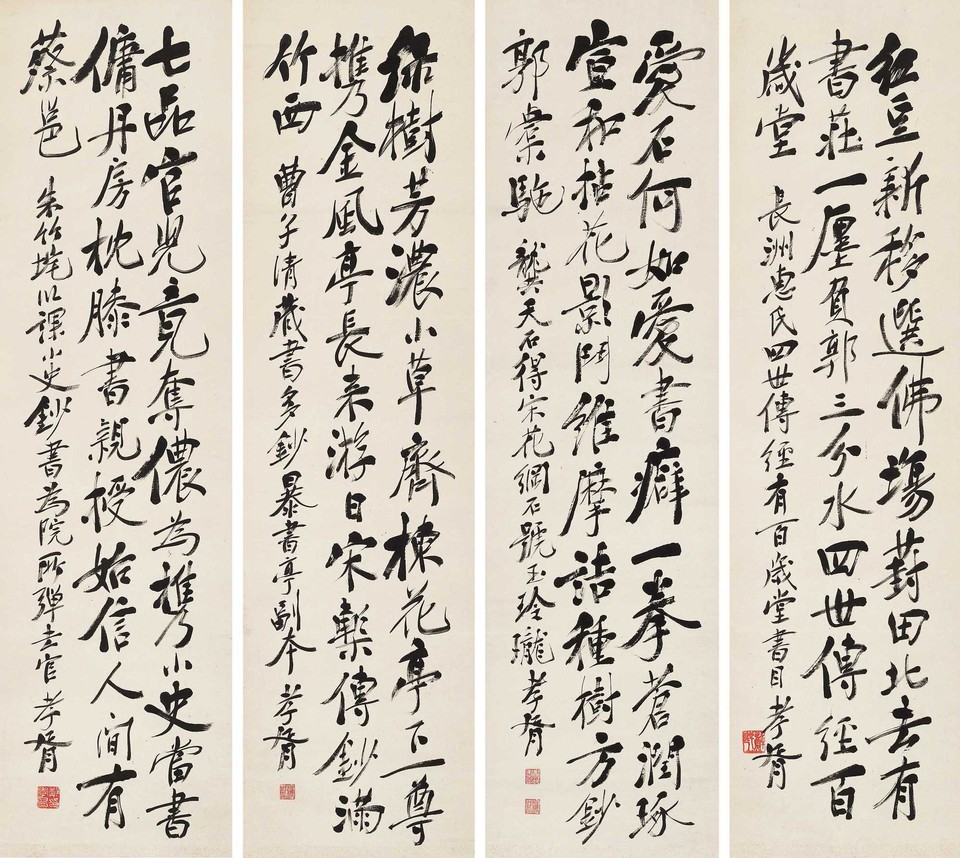 紅豆新移選佛場葑田北去有
書莊一廛負郭三分水四世傳經百
歲堂 長洲惠氏四世傳經有百歲堂書目 孝胥
愛石何如愛書癖一拳蒼潤琢
宣和拈花影鬥維摩詰種樹方鈔
郭橐駝 龔天石得宋花綱石號玉玲瓏 孝胥
綠樹芳濃小草齊楝花亭下一尊
攜金風亭長來游日宋槧傳鈔滿
竹西 曹子清藏書多鈔暴書亭副本 孝胥
七品官兒竟奪儂為攜小史當書
傭丹房枕膝書親授始信人間有
蔡邕 朱竹垞以課小史鈔書為院所彈去官 孝胥